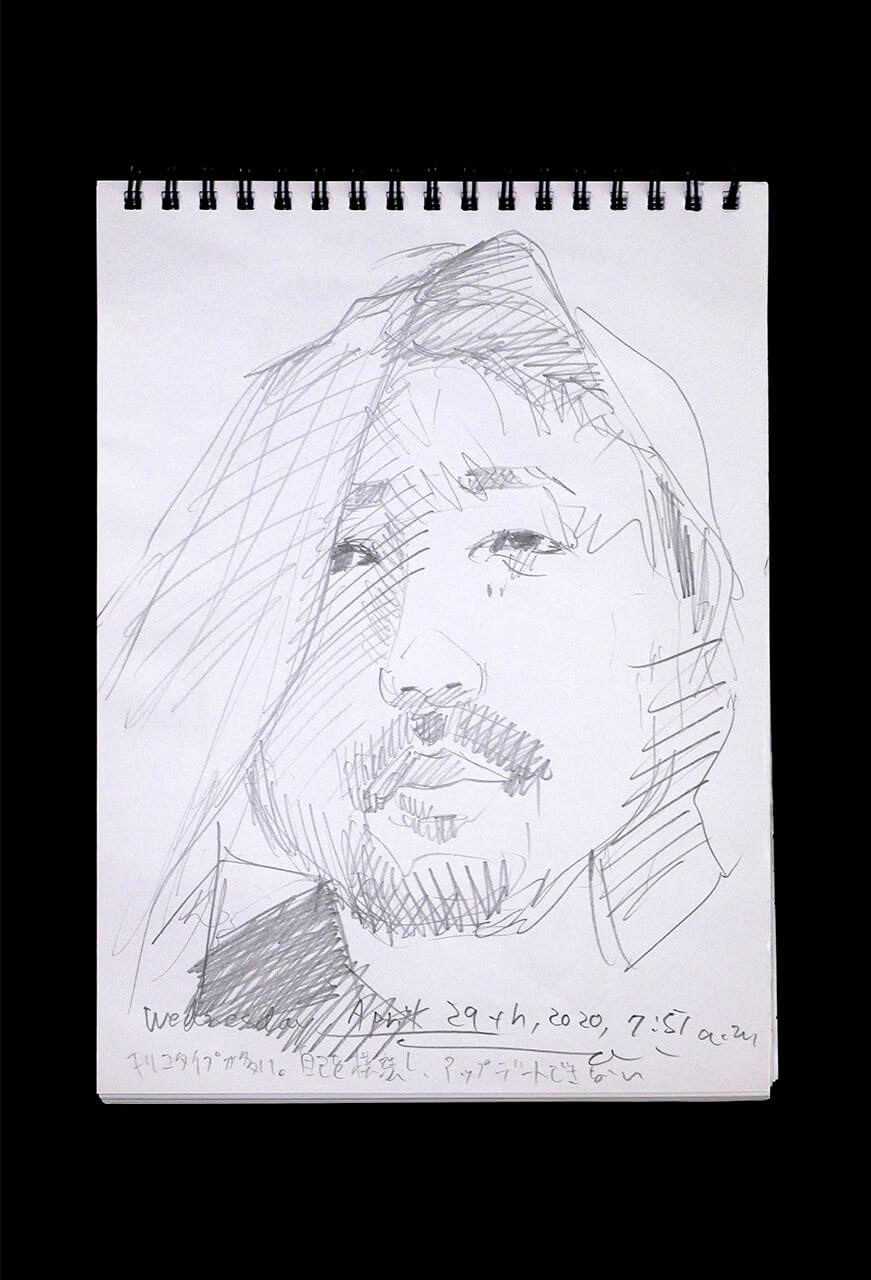 Wednesday, April 29th, 2020, 7:51 a.m
タイプが多い。自己を模装し、アップデートできない